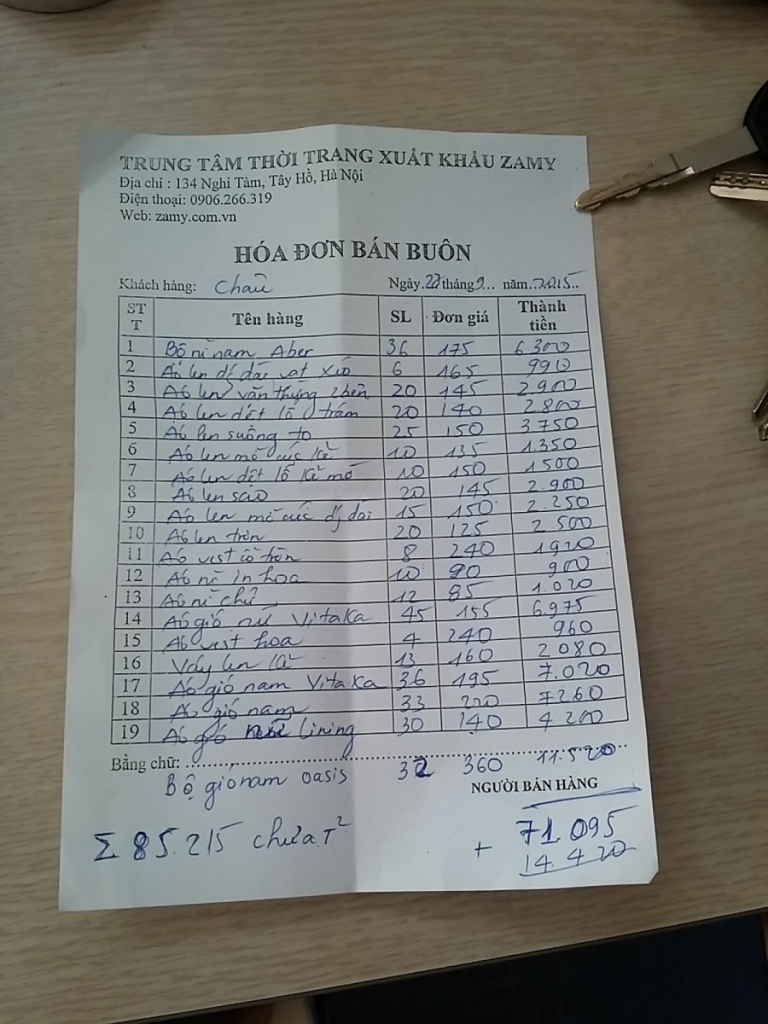 TRUNG TÂM THỜI TRANG XUẤT KHẨU ZAMY
Địa chỉ : 134 Nghi Tàm, Tây Hồ, Hà Nội
Điện thoại: 0906.266.319
Web: zamy.com.vn
HÓA ĐƠN BÁN BUÔN
Khách hàng: Châu Ngày 22 tháng 9... năm..2015..
STT Tên hàng SL Đơn giá Thành tiền
1 Bộ nỉ nam Aber 36 175 6.300
2 Áo len dệt dài vạt xéo 6 165 990
3 Áo len vặn thừng 2 bên 20 145 2.900
4 Áo len dệt lỗ trám 20 140 2.800
5 Áo len suông to 25 150 3.750
6 Áo len mở cúc kẻ 10 135 1.350
7 Áo len dệt lỗ kẻ mở 10 150 1500
8 Áo len sao 20 145 2.900
9 Áo len mở cúc dài 15 150 2.250
10 Áo len trơn 20 125 2.500
11 Áo vest cổ tròn 8 240 1920
12 Áo nỉ in hoa 10 90 900
13 Áo nỉ chữ 12 85 1.020
14 Áo gió nữ Vitaka 45 155 6.975
15 Áo vest hoa 4 240 960
16 Váy len kẻ 13 160 2.080
17 Áo gió nam Vitaka 36 195 7.020
18 Áo gió nam 33 220 7.260
19 Áo gió lining 30 140 4.200
Bằng chữ:
Bộ gió nam oasis 32 360 11.520
NGƯỜI BÁN HÀNG
71.095
+ 14.420
Σ 85.215 chưa T²